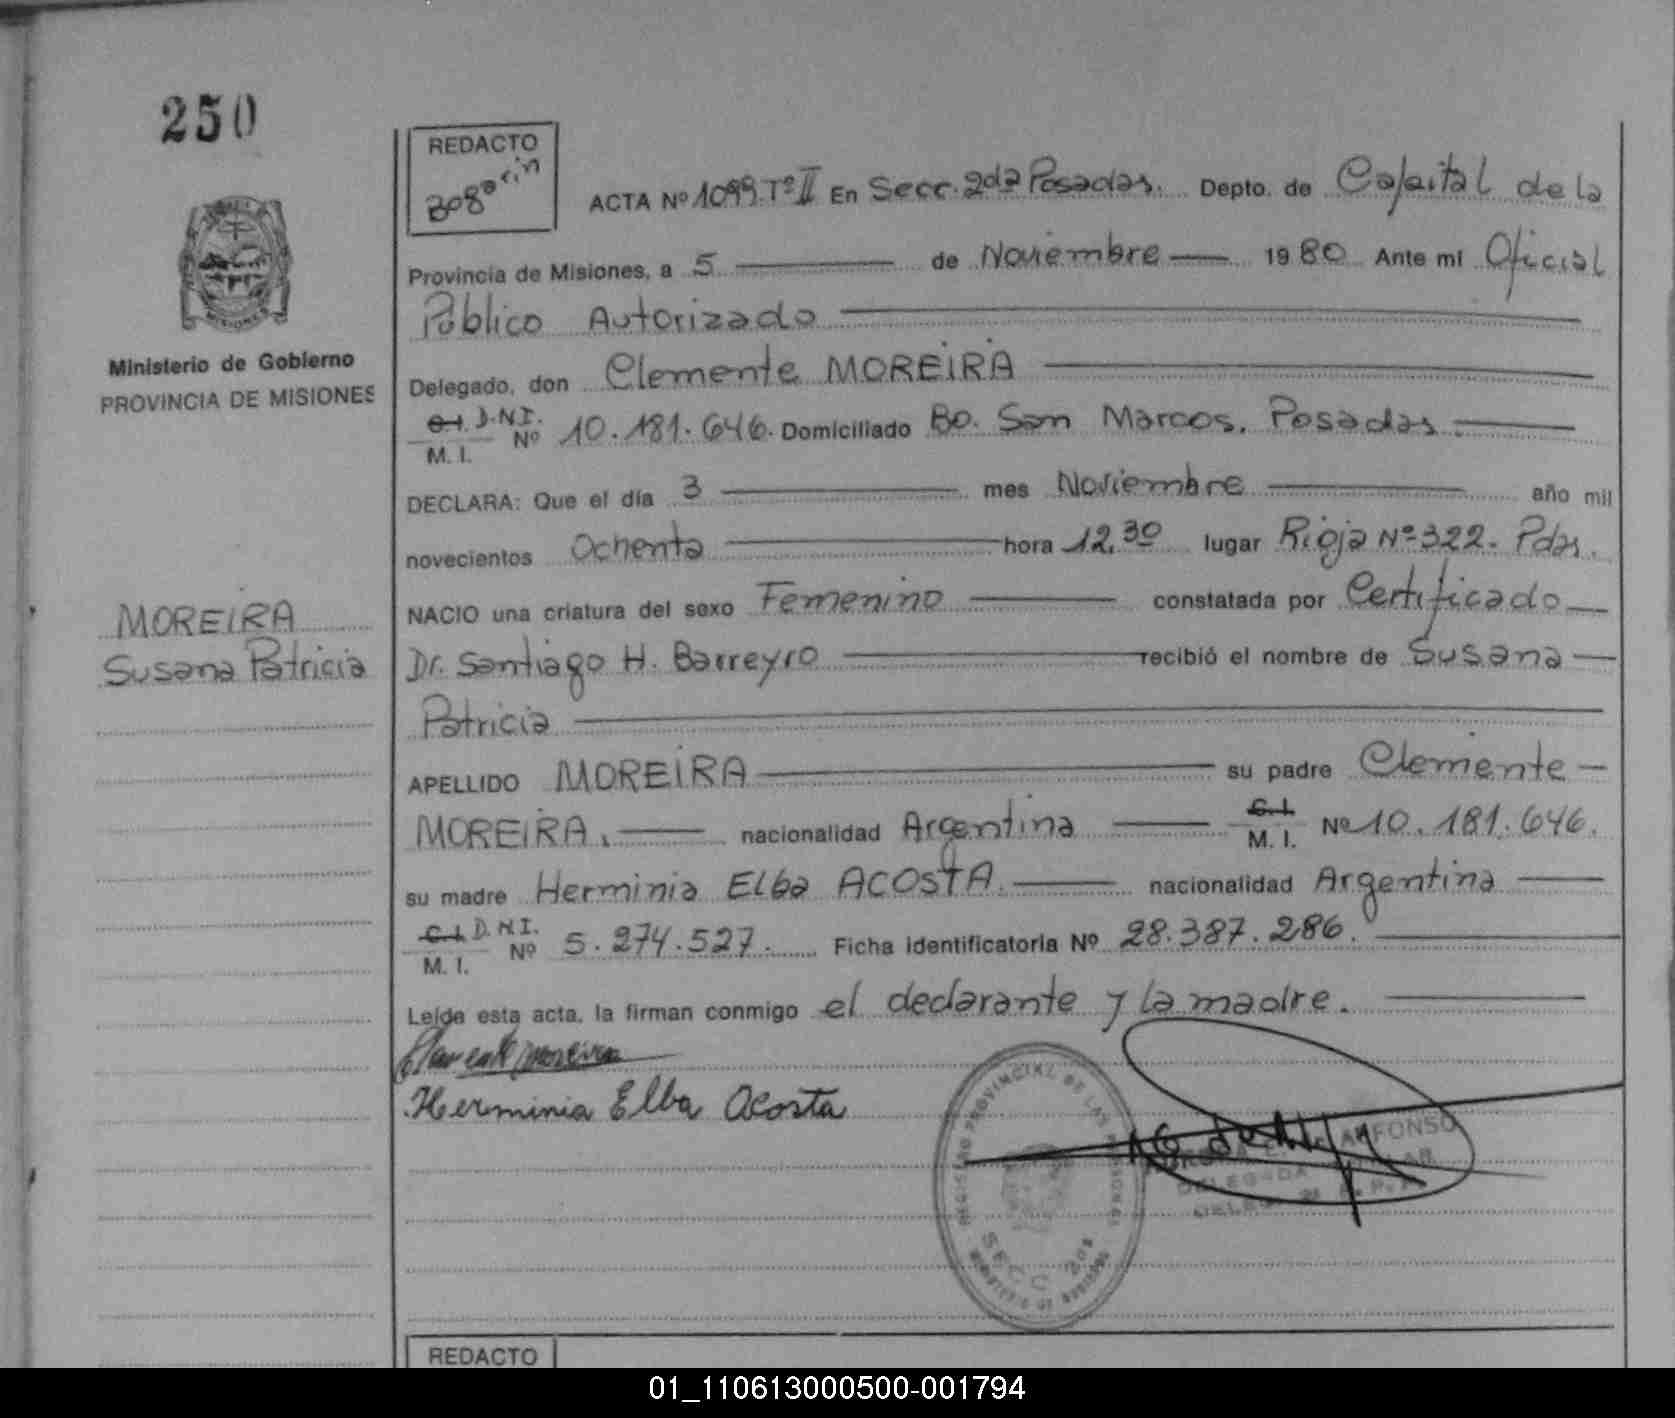 250
REDACTO
MISIONES
Ministerio de Gobierno
PROVINCIA DE MISIONES
ACTA Nº 1099. Tº II En Secc. 2da Posadas. Depto. de Capital de la
Provincia de Misiones, a 5 de Noviembre 1980 Ante mi Oficial
Público Autorizado
Delegado, don Clemente MOREIRA
C.I. D.N.I.
M. I. Nº 10.181.646. Domiciliado Bo. San Marcos. Posadas.
DECLARA: Que el día 3 mes Noviembre año mil
novecientos Ochenta hora 12.30 lugar Rioja Nº 322. Pdas.
NACIO una criatura del sexo Femenino constatada por Certificado
MOREIRA
Susana Patricia
Dr. Santiago H. Barreyro recibió el nombre de Susana
Patricia
APELLIDO MOREIRA su padre Clemente
MOREIRA. nacionalidad Argentina C.I. M. I. Nº 10.181.646.
su madre Herminia Elba ACOSTA. nacionalidad Argentina
C.I. D.N.I.
M. I. Nº 5.274.527. Ficha identificatoria Nº 28.387.286.
Leída esta acta, la firman conmigo el declarante y la madre.
Clemente Moreira
Herminia Elba Acosta
REGISTRO PROVINCIAL DE LAS PERSONAS
SECC. 2da
ALFONSO
DELEGADA TITULAR
REDACTO
01_110613000500-001794